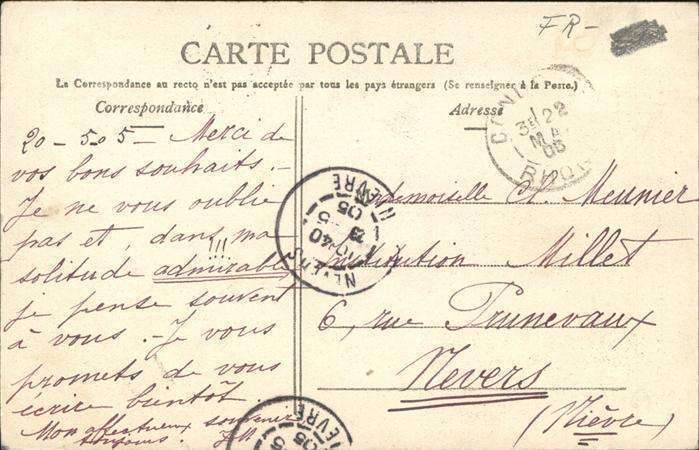 FR-
CARTE POSTALE
La Correspondance au recto n'est pas acceptée par tous les pays étrangers (Se renseigner à la Poste.)
Correspondance
Adresse
20-5-05- Merci de
vos bons souhaits.-
Je ne vous oublie
pas et, dans ma
solitude admirable !!!
je pense souvent
à vous.- Je vous
promets de vous
écrire bientôt.
Mon affectueux souvenir
toujours. J.M
Mademoiselle A. Meunier
Institution Millet
6, rue Prunevaux
Nevers
(Nièvre)
NEVERS
NIEVRE
05
22
MAI
05
IEVRE
05